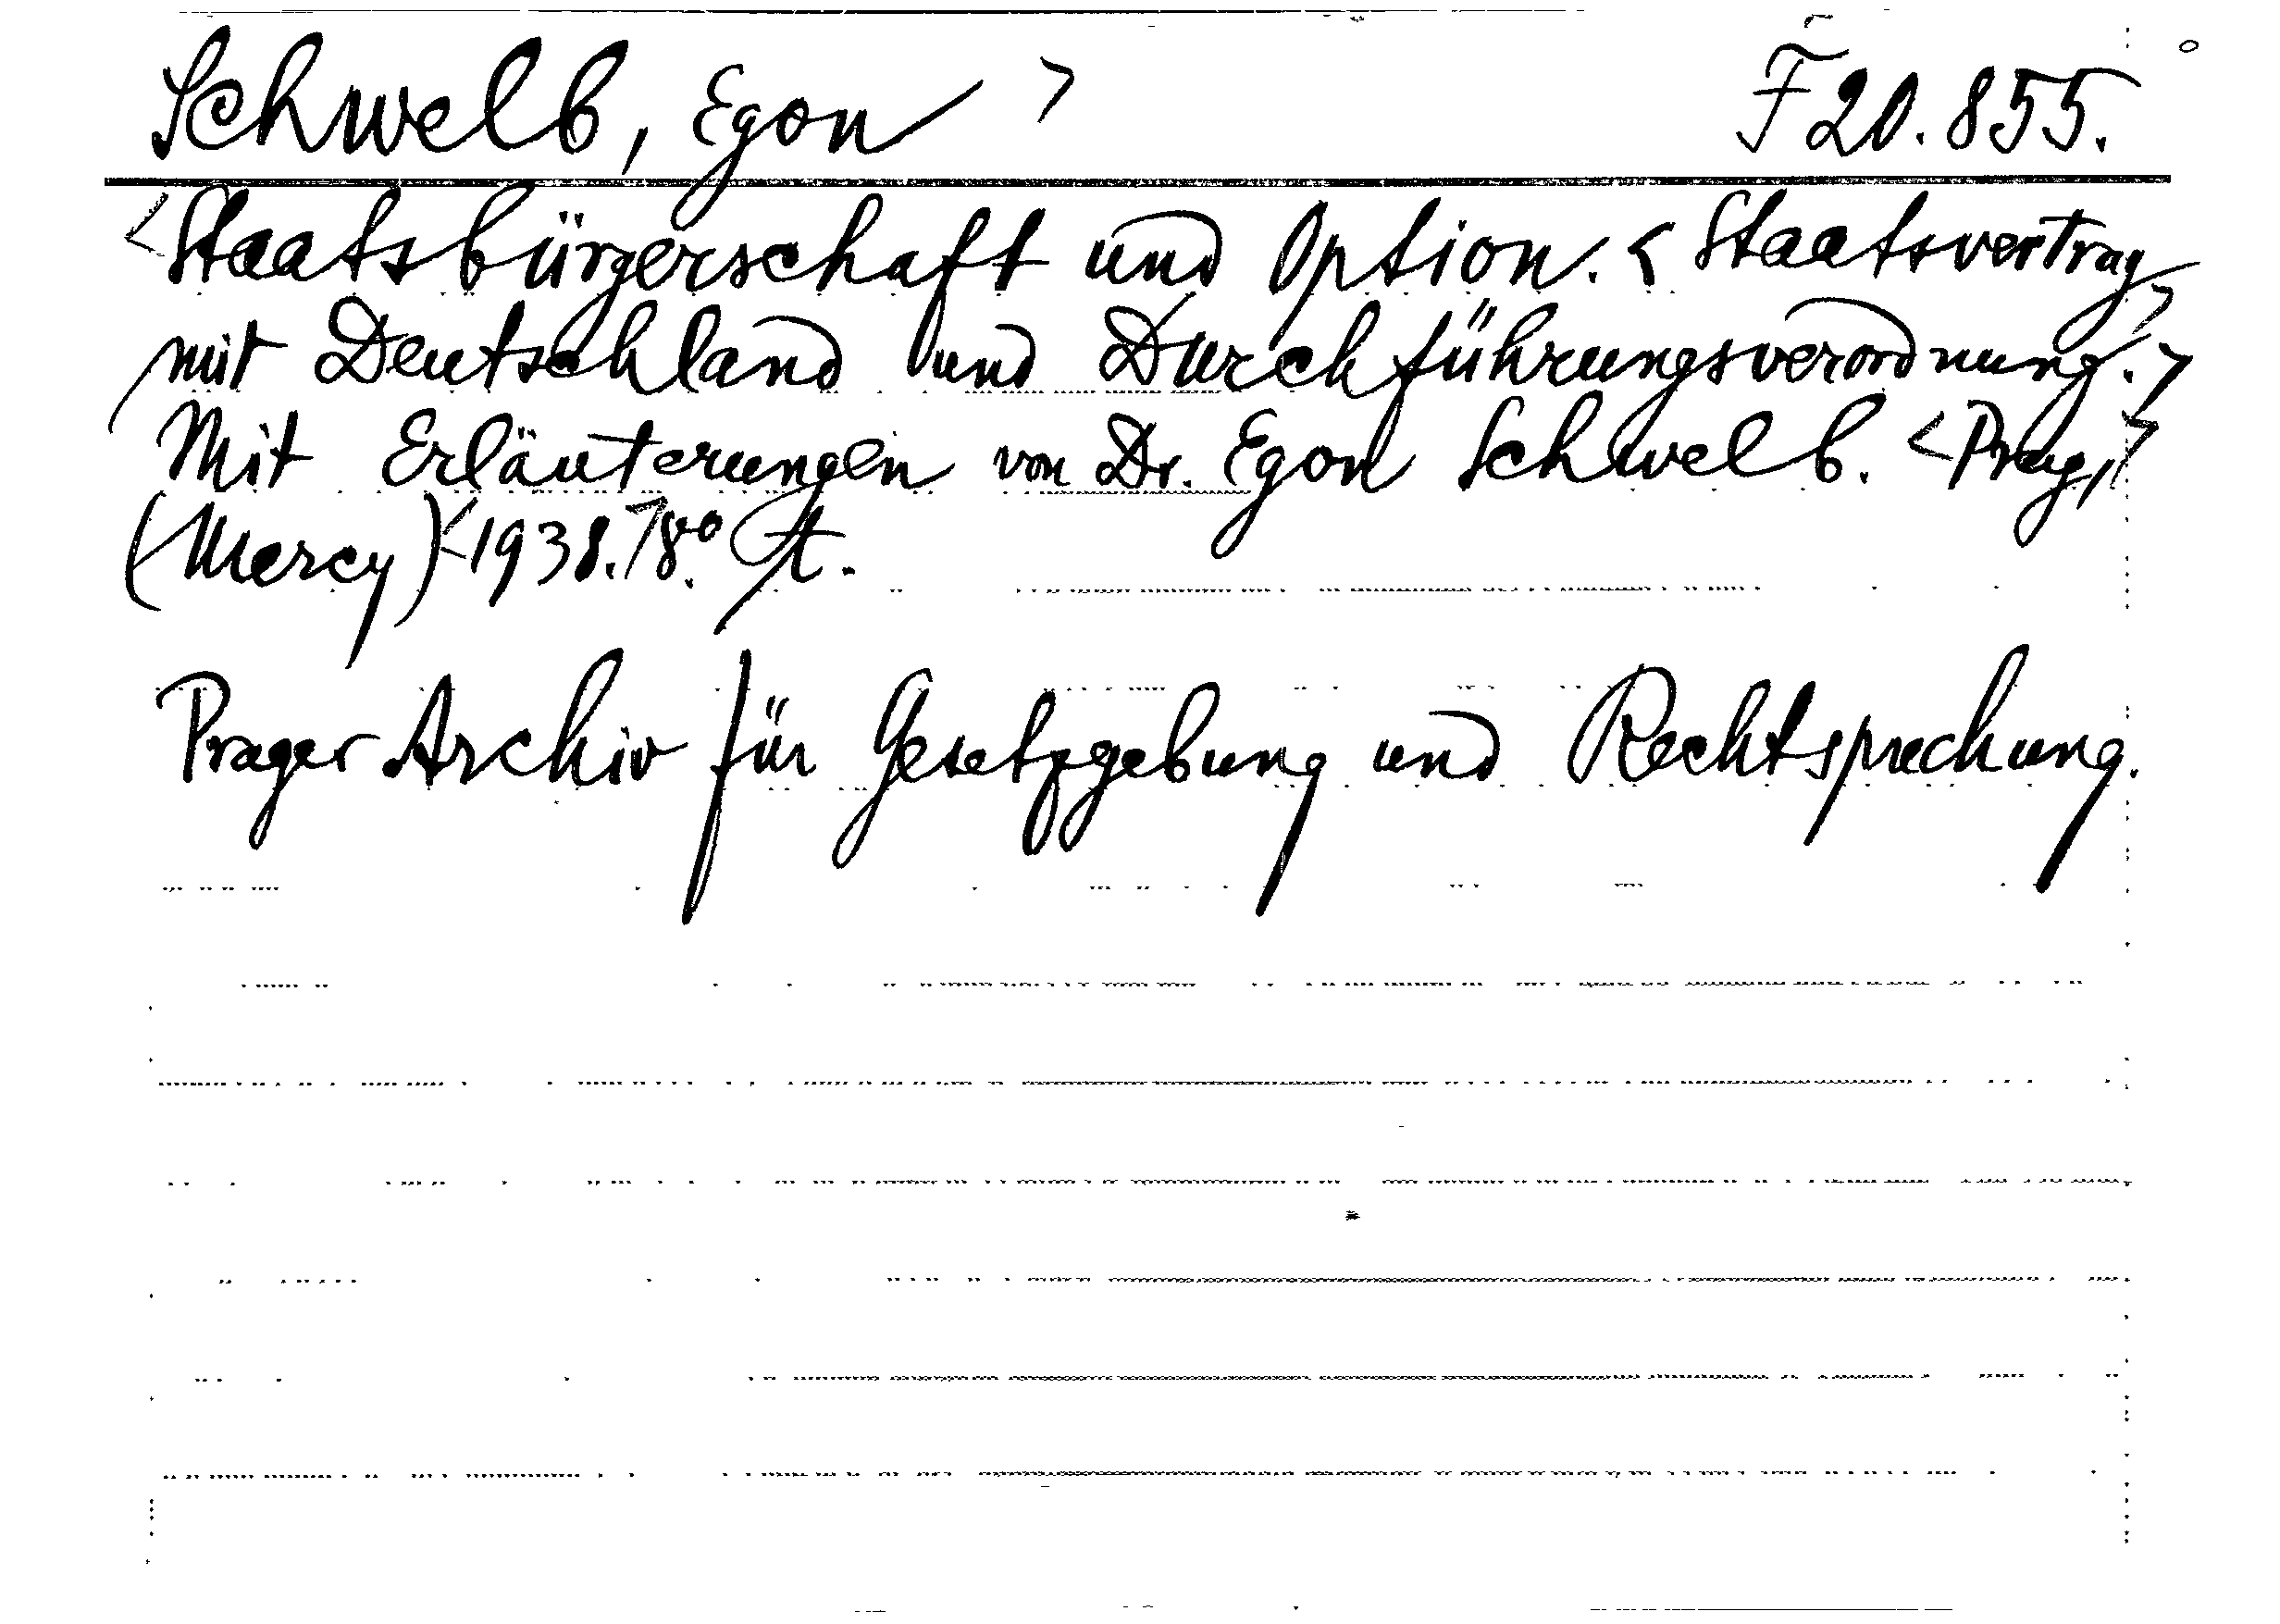 Schwelb, Egon > F 20.855.
<Staatsbürgerschaft und Option. < Staatsvertrag>
mit Deutschland und Durchführungsverordnung.>
Mit Erläuterungen von Dr. Egon Schwelb. <Prag,>
(Mercy) <1938.> 8.°
Prager Archiv für Gesetzgebung und Rechtsprechung.